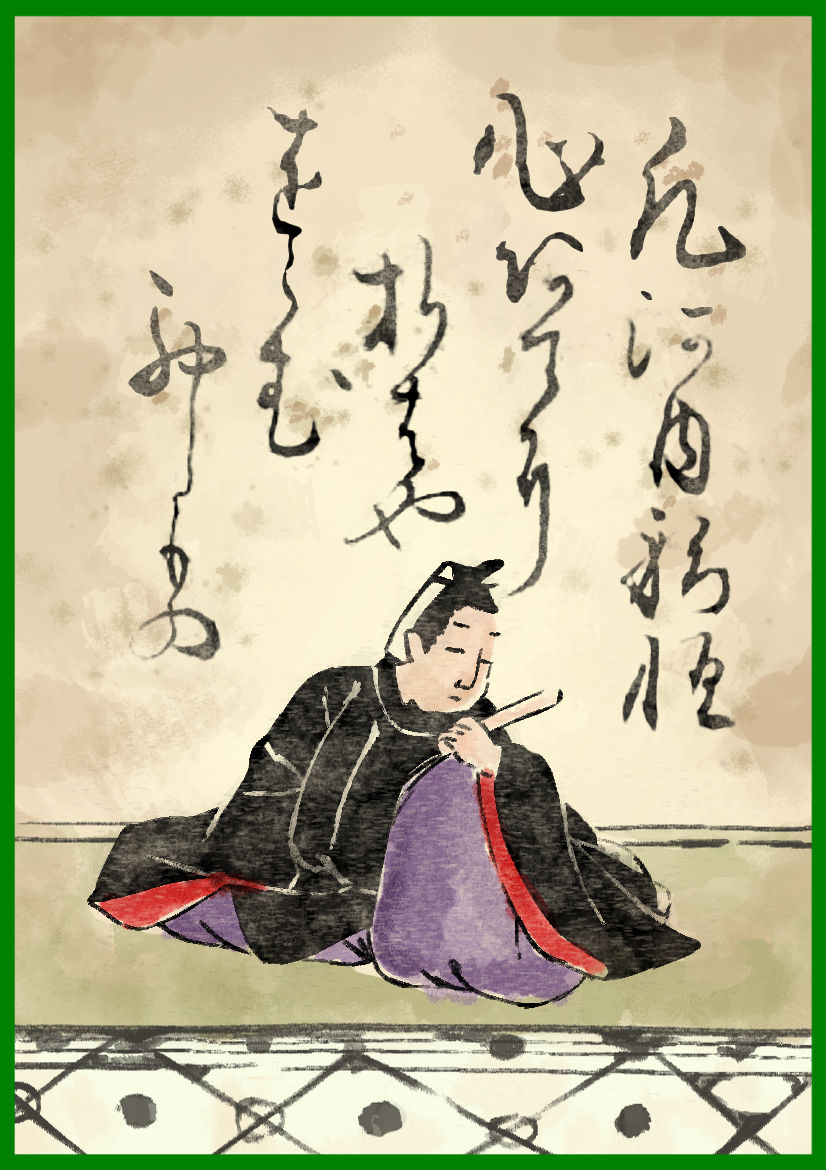 凡河内躬恒
心あてに
折はや
をらむ
初しもの